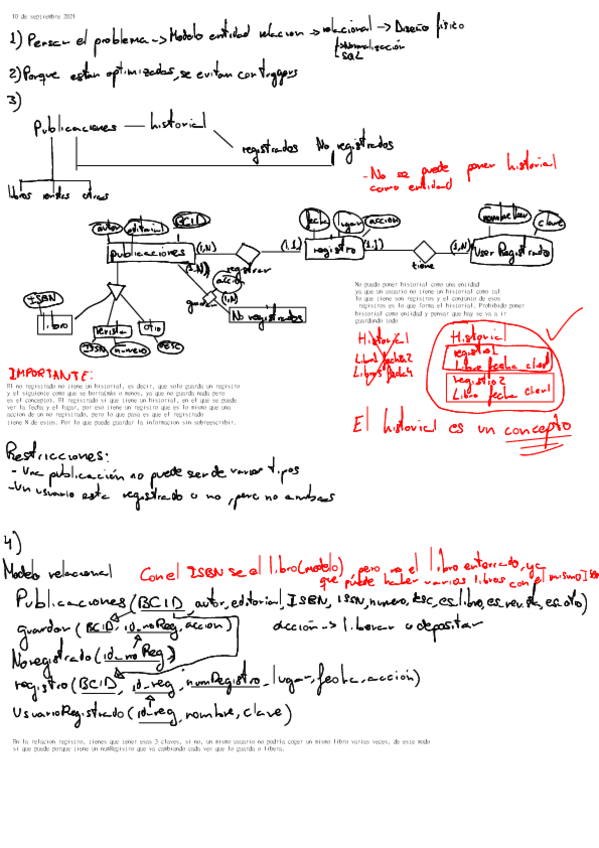 10 de septiembre 2021
1) Pensar el problema -> Modelo entidad relacion -> relacional -> Diseño físico
Normalización
SQL
2) Porque estan optimizadas, se evitan con triggers
3)
Publicaciones — historial
registrados No registrados
- No se puede poner historial
como entidad
libros revistas otras
autor editorial BCID
fecha lugar accion
nombre User clave
publicaciones (1,N) (1,1) registro (1,1) (1,N) User Registrado
registrar
tiene
(1,N)
accion
guardar (1,N)
No registrados
ISBN
libro
revista otro
ISSN numero DESC
No puedo poner historial como una enidad
ya que un usuario no tiene un historial como tal
lo que tiene son registros y el conjunto de esos
registros es lo que forma el historial. Prohibido poner
historial como enidad y pensar que hay se va a ir
guardando todo
Historial
Libro1 fecha2
Libro3 fecha4
Historial
registro1
Libro fecha clave1
registro2
Libro fecha clave1
El historial es un concepto
IMPORTANTE:
Al no registrado no tiene un historial, es decir, que solo guarda un registro
y el siguiente como que se borra(más o menos, ya que no guarda nada pero
es el concepto). Al registrado si que tiene un historial, en el que se puede
ver la fecha y el lugar, por eso tiene un registro que es lo mismo que una
accion de un no registrado, pero lo que pasa es que el registrado
tiene N de estos. Por lo que puede guardar la informacion sin sobreescribir.
Restricciones:
- Una publicación no puede ser de varios tipos
- Un usuario esta registrado o no, pero no ambas
4)
Modelo relacional
Con el ISBN se el libro(modelo), pero no el libro enterrado, ya
que puede haber varios libros con el mismo ISBN
Publicaciones (BCID, autor, editorial, ISBN, ISSN, numero, desc, es_libro, es_revista, es_otro)
guardar (BCID, id_noReg, accion) acción -> liberar o depositar
Noregistrado (id_noReg)
registro (BCID, id_reg, numRegistro, lugar, fecha, acción)
UsuarioRegistrado (id_reg, nombre, clave)
En la relacion registro, tienes que tener esas 3 claves, si no, un mismo usuario no podria coger un mismo libro varias veces, de este modo
si que puede porque tiene un numRegistro que va cambiando cada ver que lo guarda o libera.